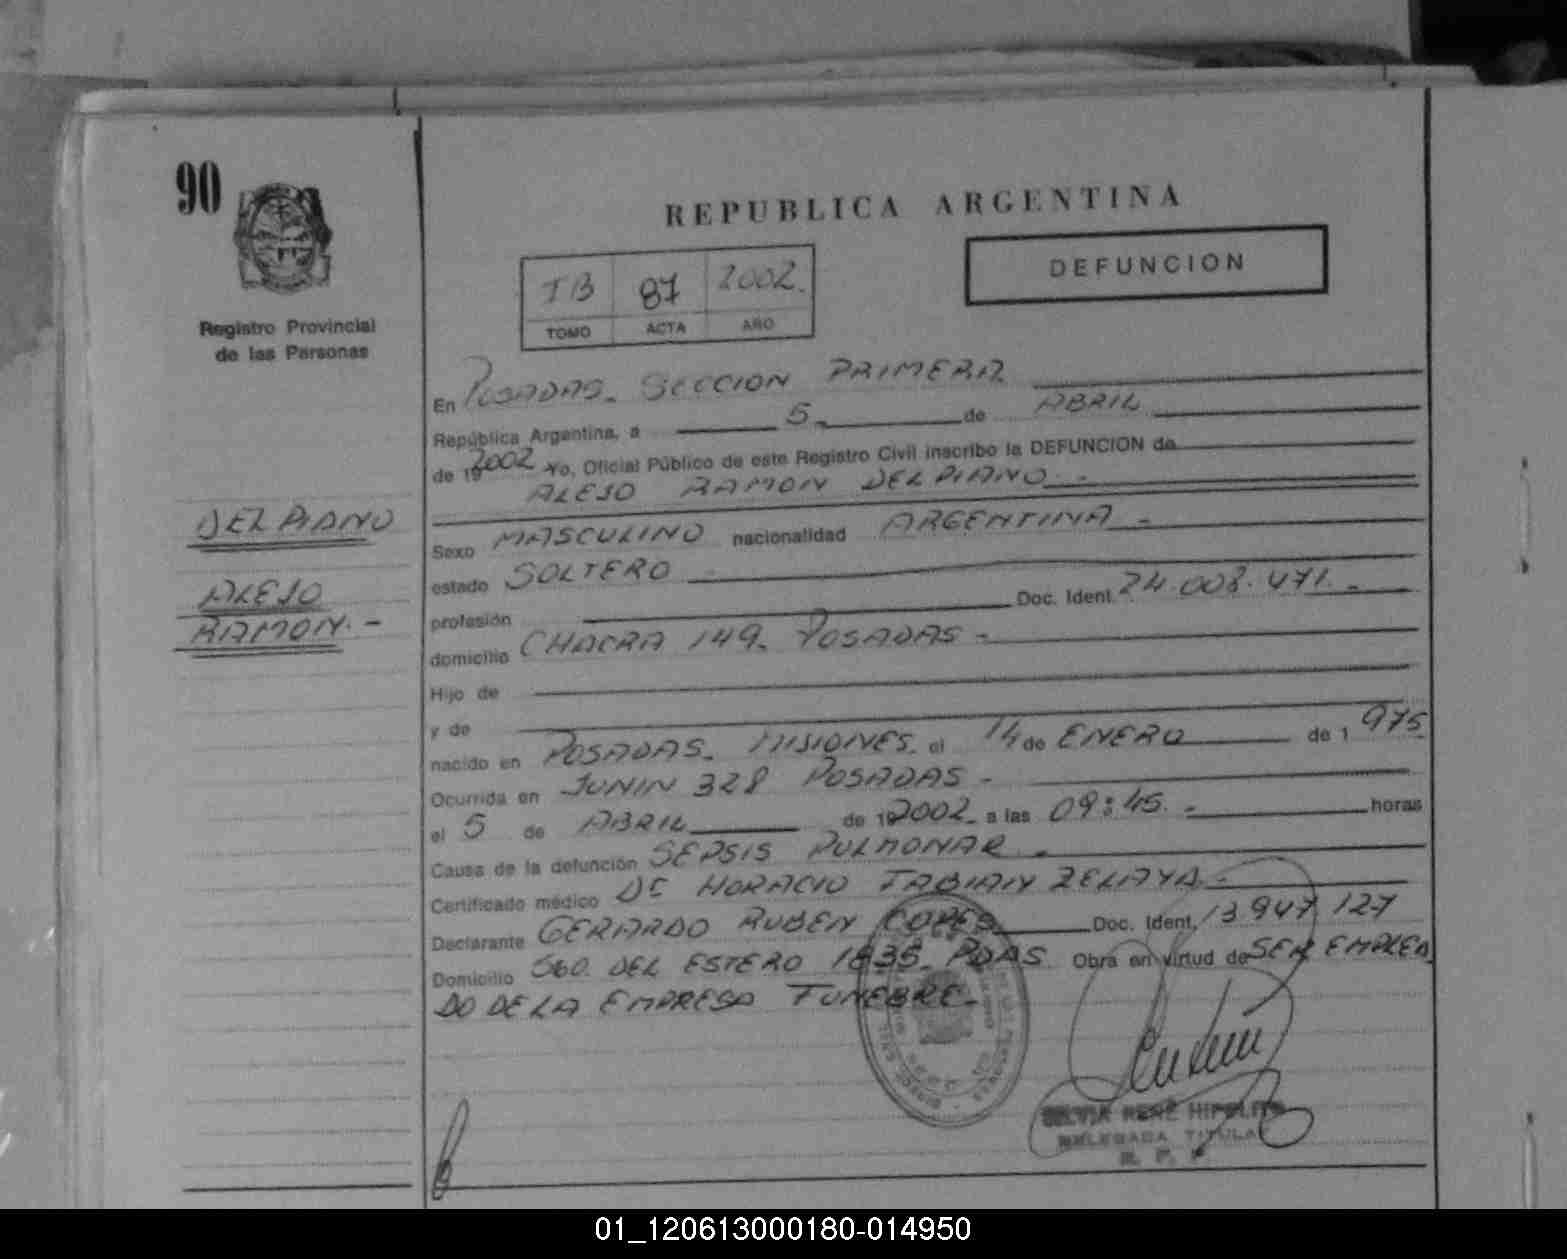 90
Registro Provincial
de las Personas
REPUBLICA ARGENTINA
DEFUNCION
TB 87 2002.
TOMO ACTA AÑO
En POSADAS. SECCION PRIMERA
República Argentina, a 5 de ABRIL
de 19 2002 Yo, Oficial Público de este Registro Civil inscribo la DEFUNCION de
ALEJO RAMON DEL PIANO. -
DEL PIANO
ALEJO
RAMON. -
Sexo MASCULINO nacionalidad ARGENTINA -
estado SOLTERO -
profesión Doc. Ident. 24.008.471. -
domicilio CHACRA 149. POSADAS -
Hijo de
y de
nacido en POSADAS. MISIONES. el 14 de ENERO de 1 975
Ocurrida en JUNIN 328 POSADAS -
el 5 de ABRIL de 19 2002. a las 09:45. - horas
Causa de la defunción SEPSIS PULMONAR -
Certificado médico DC HORACIO FABIAN ZELAYA -
Declarante GERARDO RUBEN Doc. Ident. 13 947 127
Domicilio SGO. DEL ESTERO 1835. PDAS Obra en virtud de SER EMPLEA
DO DE LA EMPRESA FUNEBRE. -
SILVIA RENE HIPOLITO
DELEGADA TITULAR
R. P. P.
01_120613000180-014950